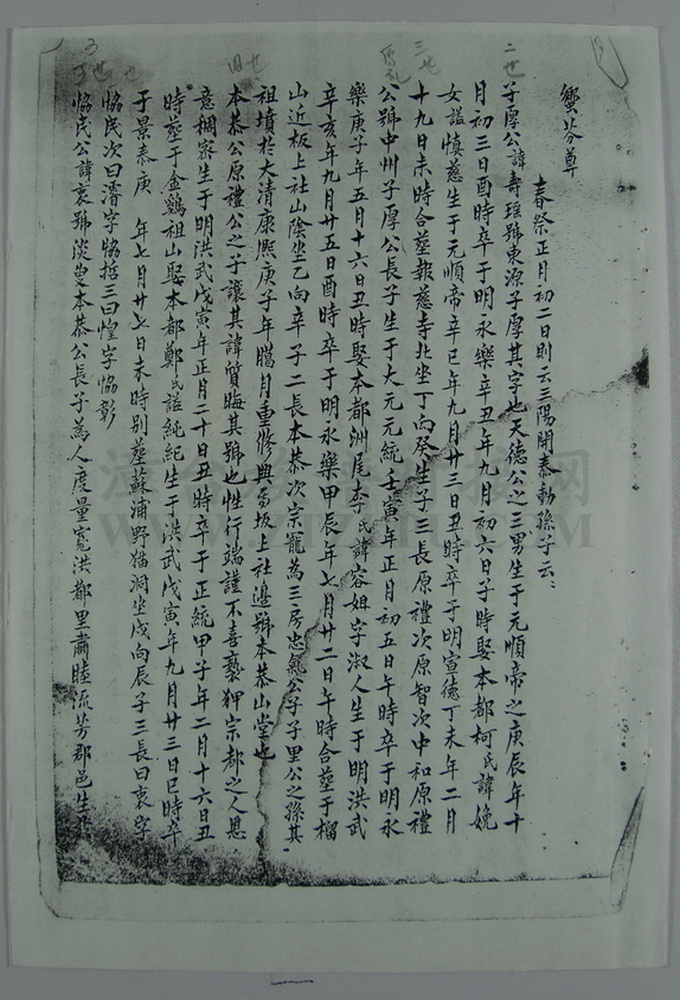 二世
三世
世
世
3
蠁芬尊
春祭正月初二日則云三陽開泰勅孫子云：
子厚公諱壽瑶號東源子厚其字也天德公之三男生于元順帝之庚辰年十
月初三日酉時卒于明永樂辛丑年九月初六日子時娶本都柯氏諱娩
女謚慎慈生于元順帝辛巳年九月廿三日丑時卒于明宣德丁未年二月
十九日未時合塟報慈寺北坐丁向癸生子三長原禮次原智次中和原禮
公號中州子厚公長子生于大元元統壬寅年正月初五日午時卒于明永
樂庚子年五月十六日丑時娶本都洲尾李氏諱容姐字淑人生于明洪武
辛亥年九月廿五日酉時卒于明永樂甲辰年七月廿二日午時合塟于榴
山近板上社山陰坐乙向辛子二長本恭次宗寵為三房忠氣公子子里公之孫其
祖墳於大清康熈庚子年臈月重修與圬坂上社邊號本恭山堂也
本恭公原禮公之子讓其諱質晦其號也性行端謹不喜褻狎宗都之人恩
意稠宻生于明洪武戊寅年正月二十日丑時卒于正統甲子年二月十六日丑
時塟于金鷄祖山娶本都鄭氏謚純紀生于洪武戊寅年九月廿三日巳時卒
于景泰庚 年七月廿七日未時别塟蘇浦野猫洞坐戌向辰子三長曰衷字
恊民次曰濬字恊哲三曰惶字恊彰
恊民公諱衷號淡叟本恭公長子為人度量寬洪都里肅睦流芳郡邑生